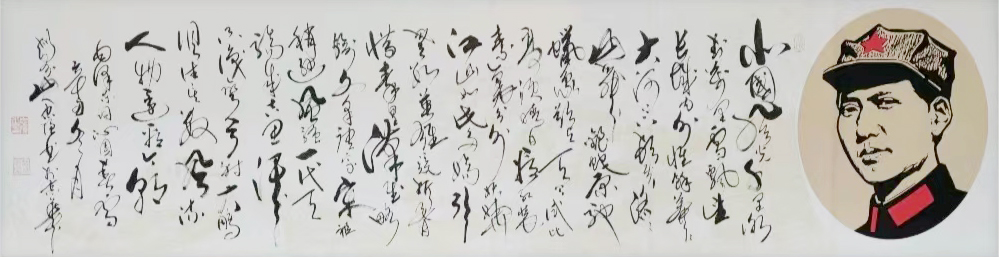 北國风光千里冰
封万里雪飘望
长城内外惟馀莽莽
大河上下顿失滔
滔山舞银蛇原驰
蜡象欲与天公试比
高须晴日看红装
素裹分外妖娆
江山如此多娇引
无数英雄竞折腰
惜秦皇漢武略
输文采唐宗宋祖
稍逊风骚一代天
骄成吉思汗
只识弯弓射大雕
俱往矣数风流
人物还看今朝
毛泽东词沁园春雪